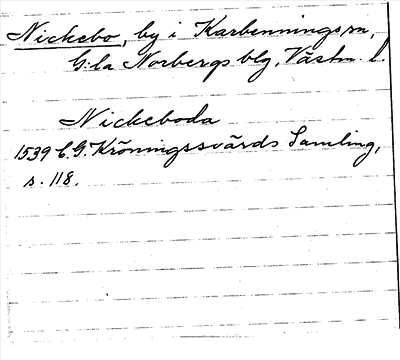 Nickebo, by i Karbennings sn,
G:la Norbergs blg, Västm. l.
Nickeboda
1539 C.G. Kröningssvärds Samling,
s. 118.